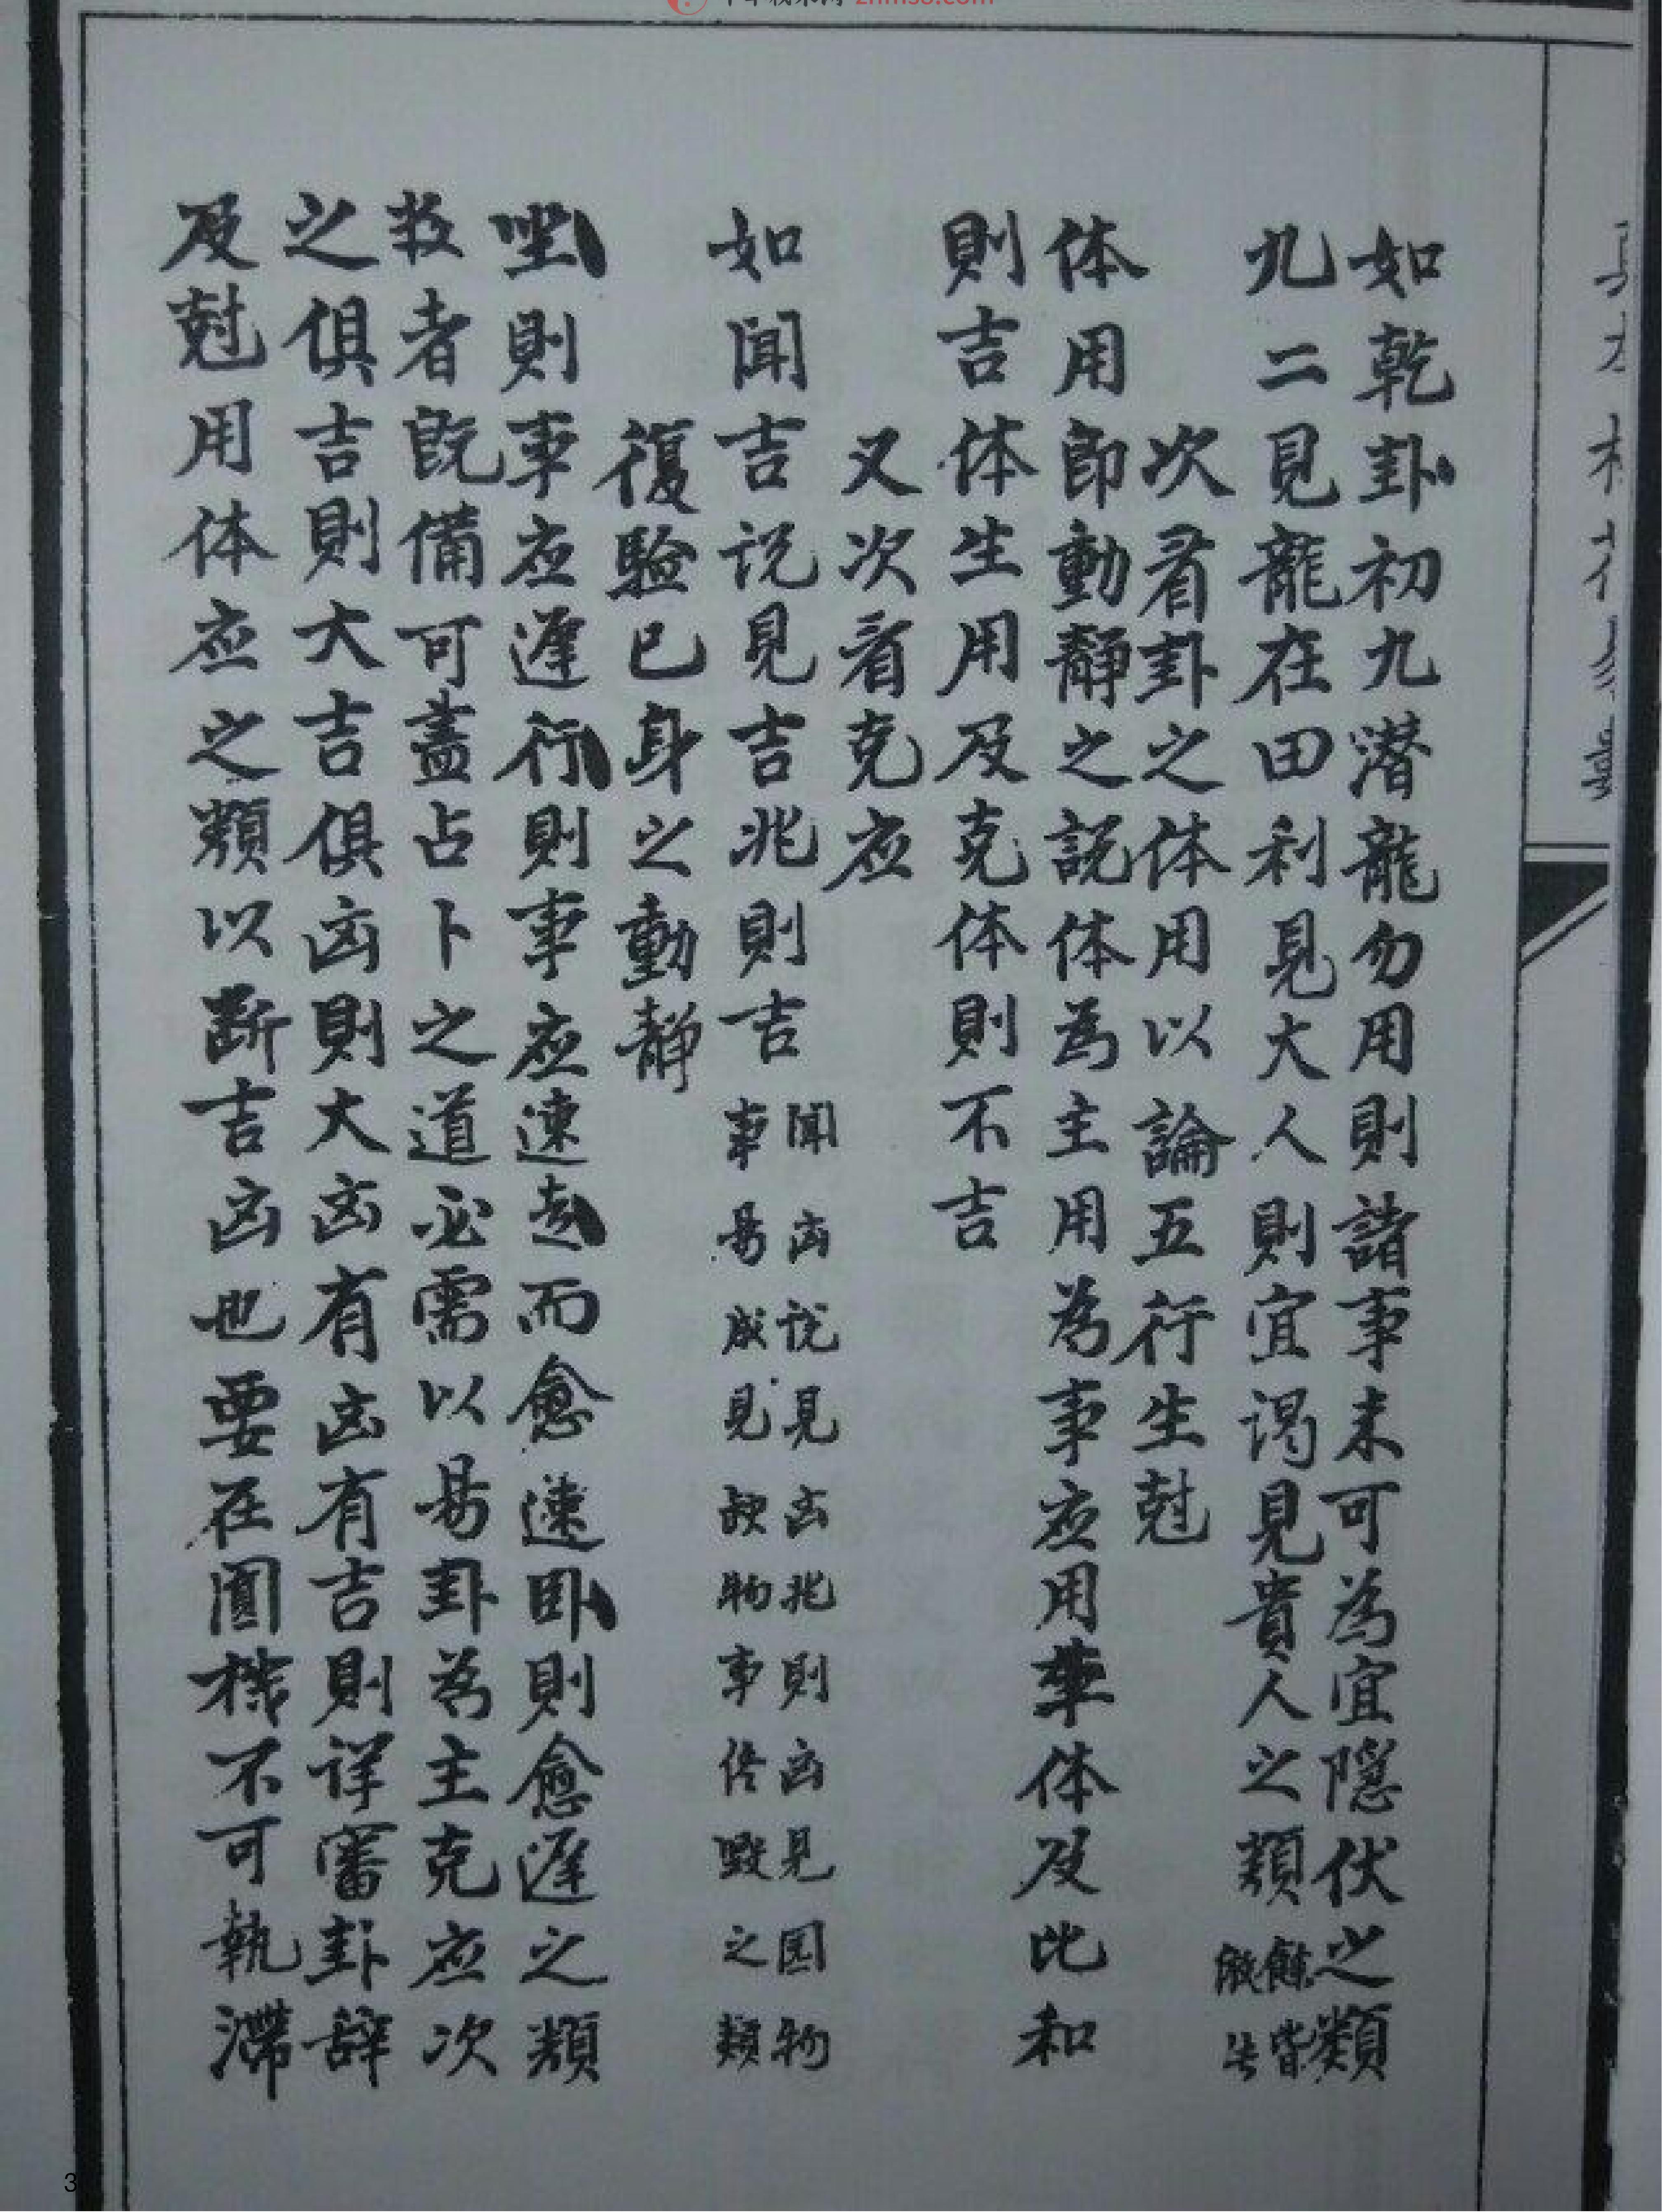 如乾卦初九潜龍勿用則諸事未可為宜隱伏之類
九二見龍在田利見大人則宜谒見貴人之類餘皆
次看卦之体用以論五行生尅
体用即動靜之説体為主用為事应用事体及比和
則吉体生用及克体則不吉
又次看克应
如闻吉说見吉兆則吉
闻凶说見凶兆則凶見囯物
事易成見缺物事俗毀之類
復驗已身之動靜
坐則事应遲行則事应速走而愈速卧則愈遲之類
者既備可蓋占卜之道必需以易卦為主克应次
之俱吉則大吉俱凶則大凶有凶有吉則详審卦辞
及尅用体应之類以斷吉凶也要在圓機不可執滯
zhms8.com
3